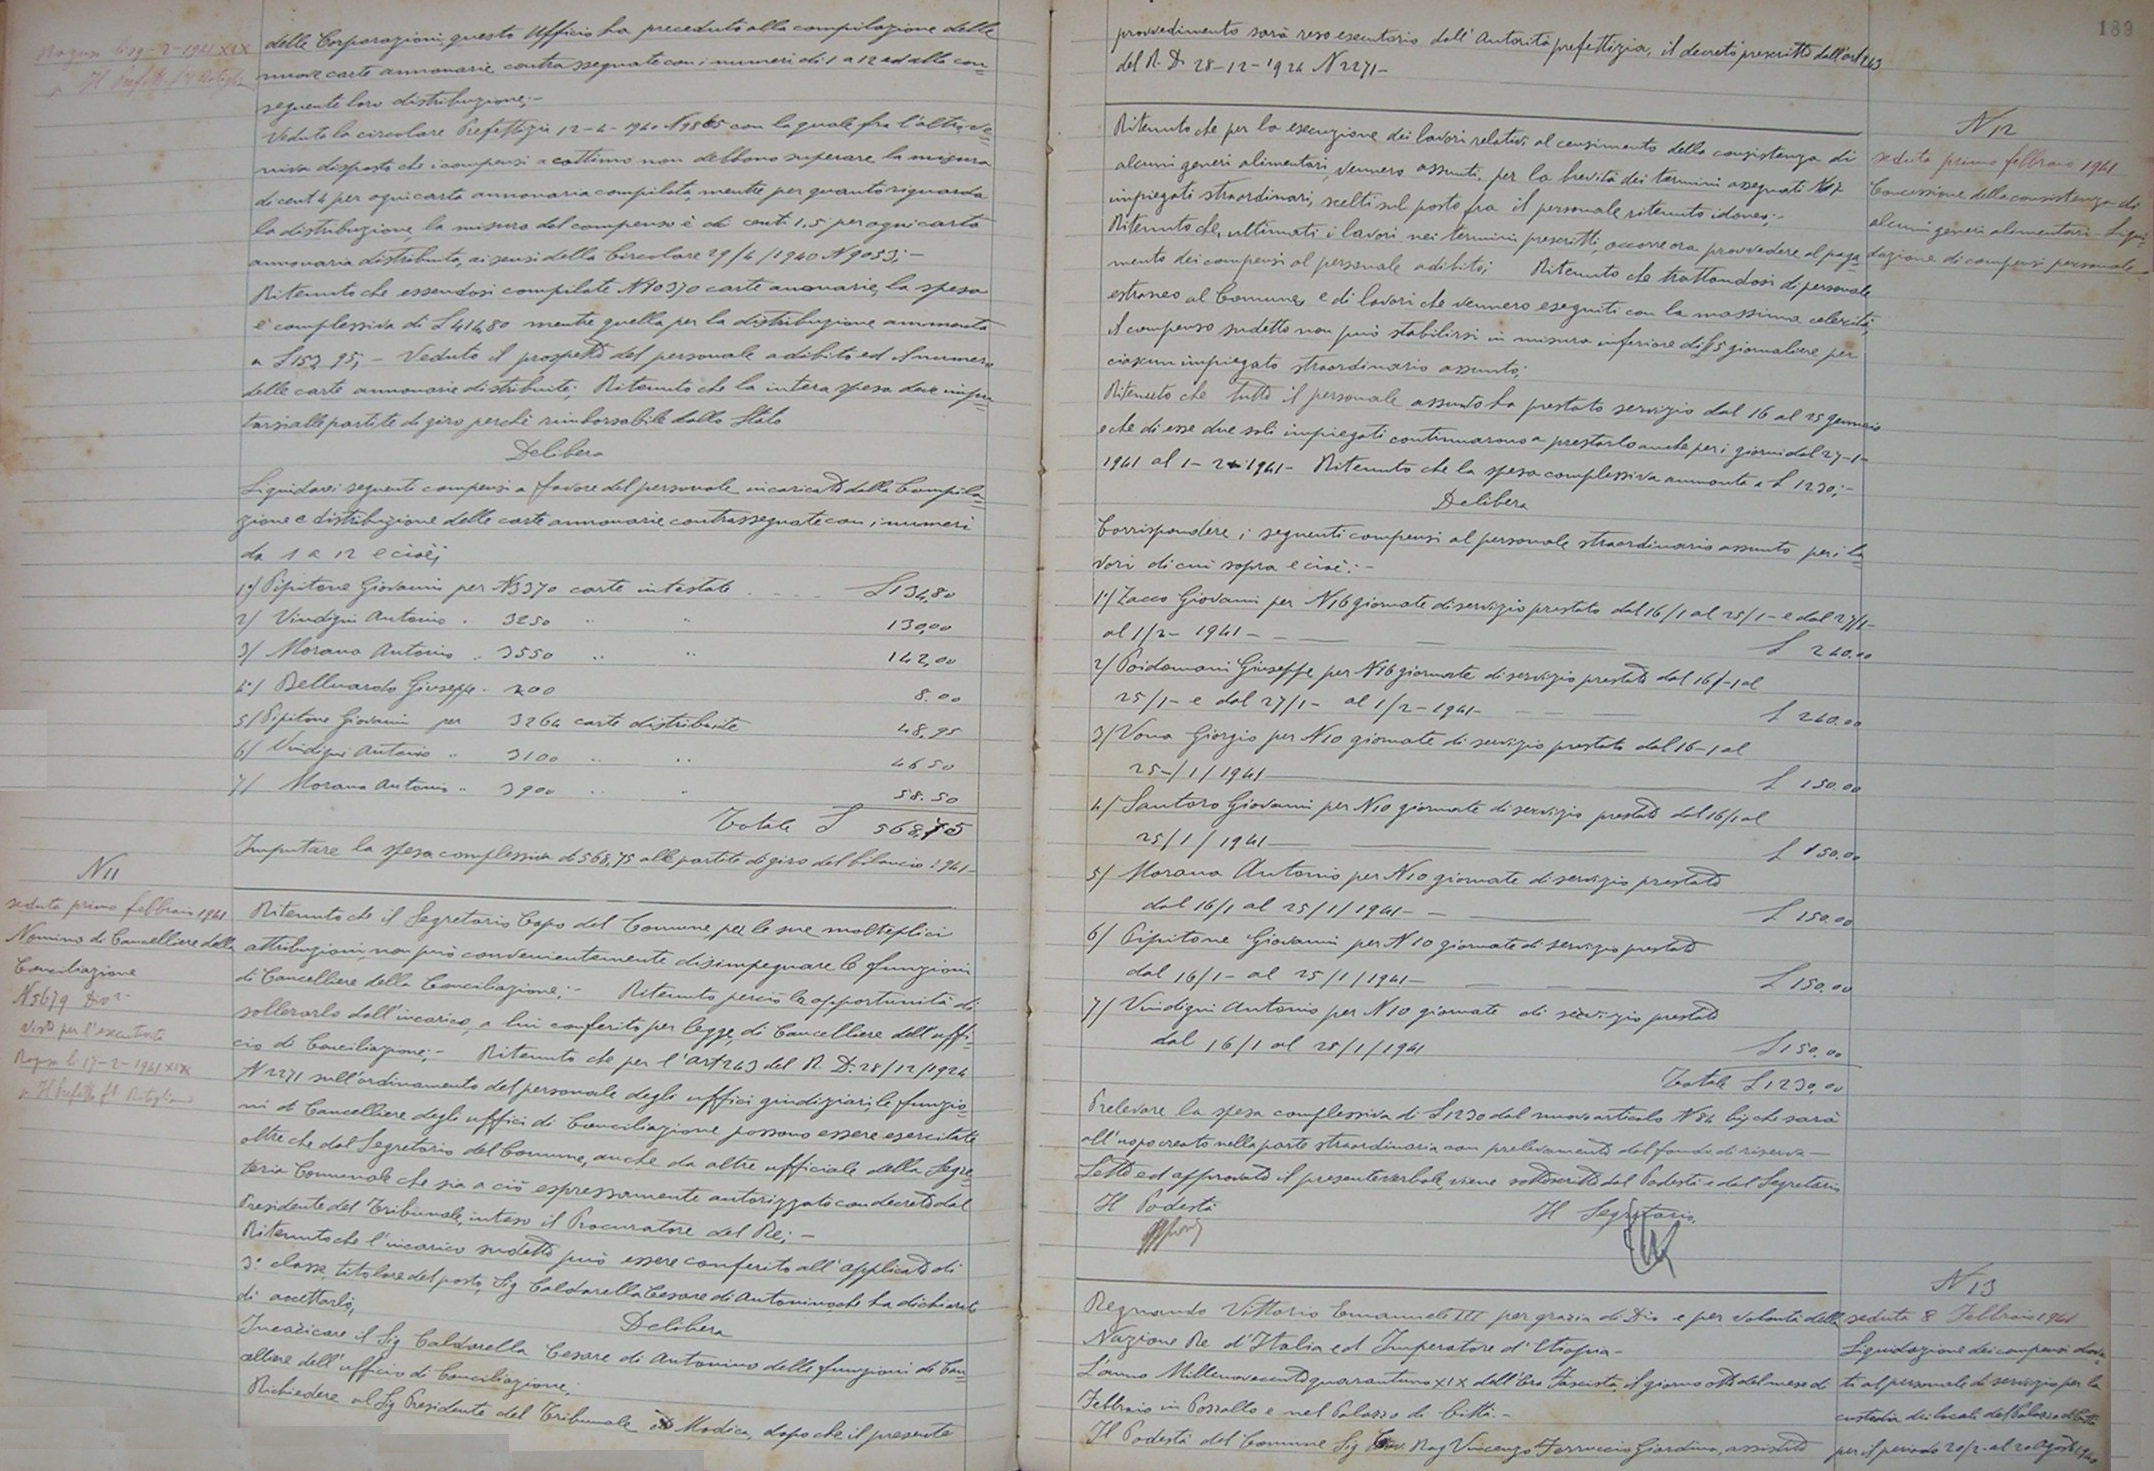 Ragusa li 19-2-1941 XIX
p. Il Prefetto fto
delle Corporazioni, questo Ufficio ha preceduto alla compilazione delle
nuove carte annonarie contrassegnate con i numeri di 1 a 12 ed alla con=
seguente loro distribuzione;-
Veduta la circolare Prefettizia 12-4-1940 N 9865 con la quale fra l'altro ve=
niva disposto che i compensi a cottimo non debbono superare la misura
di cent 4 per ogni carta annonaria compilata, mentre per quanto riguarda
la distribuzione, la misura del compenso è di cent. 1,5 per ogni carta
annonaria distribuita, ai sensi della Circolare 29/4/1940 N 9033;-
Ritenuto che essendosi compilate N 10370 carte annonarie, la spesa
è complessiva di L 414,80 mentre quella per la distribuzione ammonta
a L 153,95;- Veduto il prospetto del personale adibito ed il numero
delle carte annonarie distribuite; Ritenuto che la intera spesa deve impu=
tarsi alle partite di giro perchè rimborsabile dallo Stato
Delibera
Liquidarsi seguenti compensi a favore del personale incaricato della Compila=
zione e distribuzione delle carte annonarie contrassegnate con i numeri
da 1 a 12 e cioè;
1°/ Pipitone Giovanni per N 3370 carte intestate . . . . L 134,80
2/ Vindigni Antonio . 3250 " " 130,00
3/ Morana Antonio .. 3550 " " 142,00
4°/ Belluardo Giuseppe . 200 8.00
5/ Pipitone Giovanni per 3264 carte distribuite 48,95
6/ Vindigni Antonio .. 3100 " " 46 50
7/ Morana Antonio .. 3900 " " 58.50
Totale L 568,75
Imputare la spesa complessiva di 568,75 alle partite di giro del bilancio 1941-
N 11
seduta primo febbraio 1941
Nomina di Cancelliere della
Conciliazione
N 5679 Div 2ª
Visto per l'esecutorietà
Ragusa li 17-2-1941 XIX
p. Il Prefetto fto
Ritenuto che il Segretario Capo del Comune, per le sue molteplici
attribuzioni non può convenientemente disimpegnare le funzioni
di Cancelliere della Conciliazione;- Ritenuto perciò la opportunità di
sollevarlo dall'incarico, a lui conferito per legge, di Cancelliere dell'uffi=
cio di Conciliazione;- Ritenuto che per l'art 263 del R. D. 28/12/1924
N 2271 sull'ordinamento del personale degli uffici giudiziari, le funzio=
ni di Cancelliere degli uffici di Conciliazione possono essere esercitate
oltre che dal Segretario del Comune, anche da altre ufficiale della Segre=
teria Comunale che sia a ciò espressamente autorizzato con decreto dal
Presidente del Tribunale, inteso il Procuratore del Re;-
Ritenuto che l'incarico sudetto può essere conferito all'applicato di
3ª classe, titolare del posto, Sig Caldarella Cesare di Antonino che ha dichiarato
di accettarlo,
Delibera
Incaricare il Sig Caldarella Cesare di Antonino delle funzioni di Can=
celliere dell'ufficio di Conciliazione;
Richiedere al Sig Presidente del Tribunale di Modica, dopo che il presente
189
provvedimento sarà reso esecutorio dall'Autorità prefettizia, il decreto prescritto dall'art 263
del R. D. 28-12-1924 N 2271-
N 12
seduta primo febbraio 1941
Concessione della consistenza di
alcuni generi alimentari - Liqui=
dazione di compensi personale-
Ritenuto che per la esecuzione dei lavori relativi al censimento della consistenza di
alcuni generi alimentari, vennero assunti, per la brevità dei termini assegnati N 7
impiegati straordinari, scelti sul posto fra il personale ritenuto idoneo;-
Ritenuto che, ultimati i lavori nei termini prescritti, occorre ora provvedere al paga=
mento dei compensi al personale adibito; Ritenuto che trattandosi di personale
estraneo al Comune, e di lavori che vennero eseguiti con la massima celerità,
il compenso sudetto non può stabilirsi in misura inferiore di L 15 giornaliere per
ciascun impiegato straordinario assunto;
Ritenuto che tutto il personale assunto ha prestato servizio dal 16 al 25 gennaio
e che di esse due soli impiegati continuarono a prestarlo anche per i giorni dal 27-1-
1941 al 1-2-1941- Ritenuto che la spesa complessiva ammonta a L 1230;-
Delibera
Corrispondere i seguenti compensi al personale straordinario assunto per i la=
vori di cui sopra e cioè:-
1°/ Zacco Giovanni per N 16 giornate di servizio prestato dal 16/1 al 25/1- e dal 27/1-
al 1/2- 1941- L 240.00
2/ Poidomani Giuseppe per N 16 giornate di servizio prestato dal 16/-1 al
25/1- e dal 27/1- al 1/2-1941- L 240.00
3/ Vona Giorgio per N 10 giornate di servizio prestato dal 16-1 al
25-/1/1941 L 150.00
4/ Santoro Giovanni per N 10 giornate di servizio prestato dal 16/1 al
25/1/1941 L 150.00
5/ Morana Antonio per N 10 giornate di servizio prestato
dal 16/1 al 25/1/1941- L 150.00
6/ Pipitone Giovanni per N 10 giornate di servizio prestato
dal 16/1- al 25/1/1941- L 150.00
7/ Vindigni Antonio per N 10 giornate di servizio prestato
dal 16/1 al 25/1/1941 L 150.00
Totale L 1230,00
Prelevare la spesa complessiva di L 1230 dal nuovo articolo N 84 bis che sarà
all'uopo creato nella parte straordinaria con prelevamento dal fondo di riserva-
Letto ed approvato il presente verbale, viene sottoscritto dal Podestà e dal Segretario
Il Podestà Il Segretario
N 13
seduta 8 Febbraio 1941
Liquidazione dei compensi dovu=
ti al personale di servizio per la
custodia dei locali del Palazzo di Città
per il periodo 20/2 al 20 agosto 1940
Regnando Vittorio Emanuele III per grazia di Dio e per volontà della
Nazione Re d'Italia ed Imperatore d'Etiopia-
L'anno Millenovecentoquarantuno XIX dell'Era Fascista, il giorno otto del mese di
Febbraio in Pozzallo e nel Palazzo di Città.-
Il Podestà del Comune Sig Cav. Rag Vincenzo Ferruccio Giardina, assistito